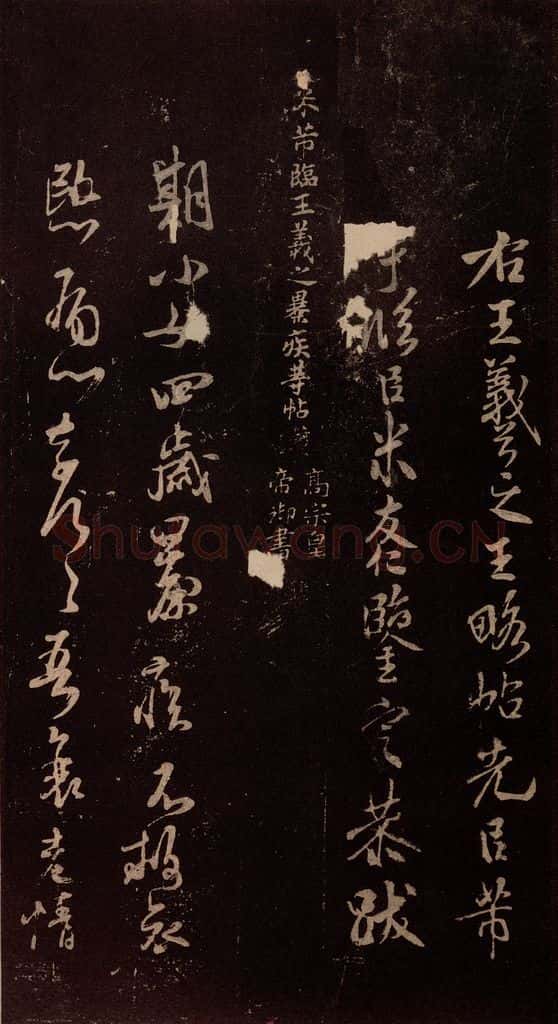 右王羲之王略帖先臣芾
手臨臣米友仁鑒定恭跋
米芾臨王羲之暴疾等帖
高宗皇
帝御書
期小女四歲暴疾不救哀
愍痛心奈何々吾衰老情
Shufawang.CN